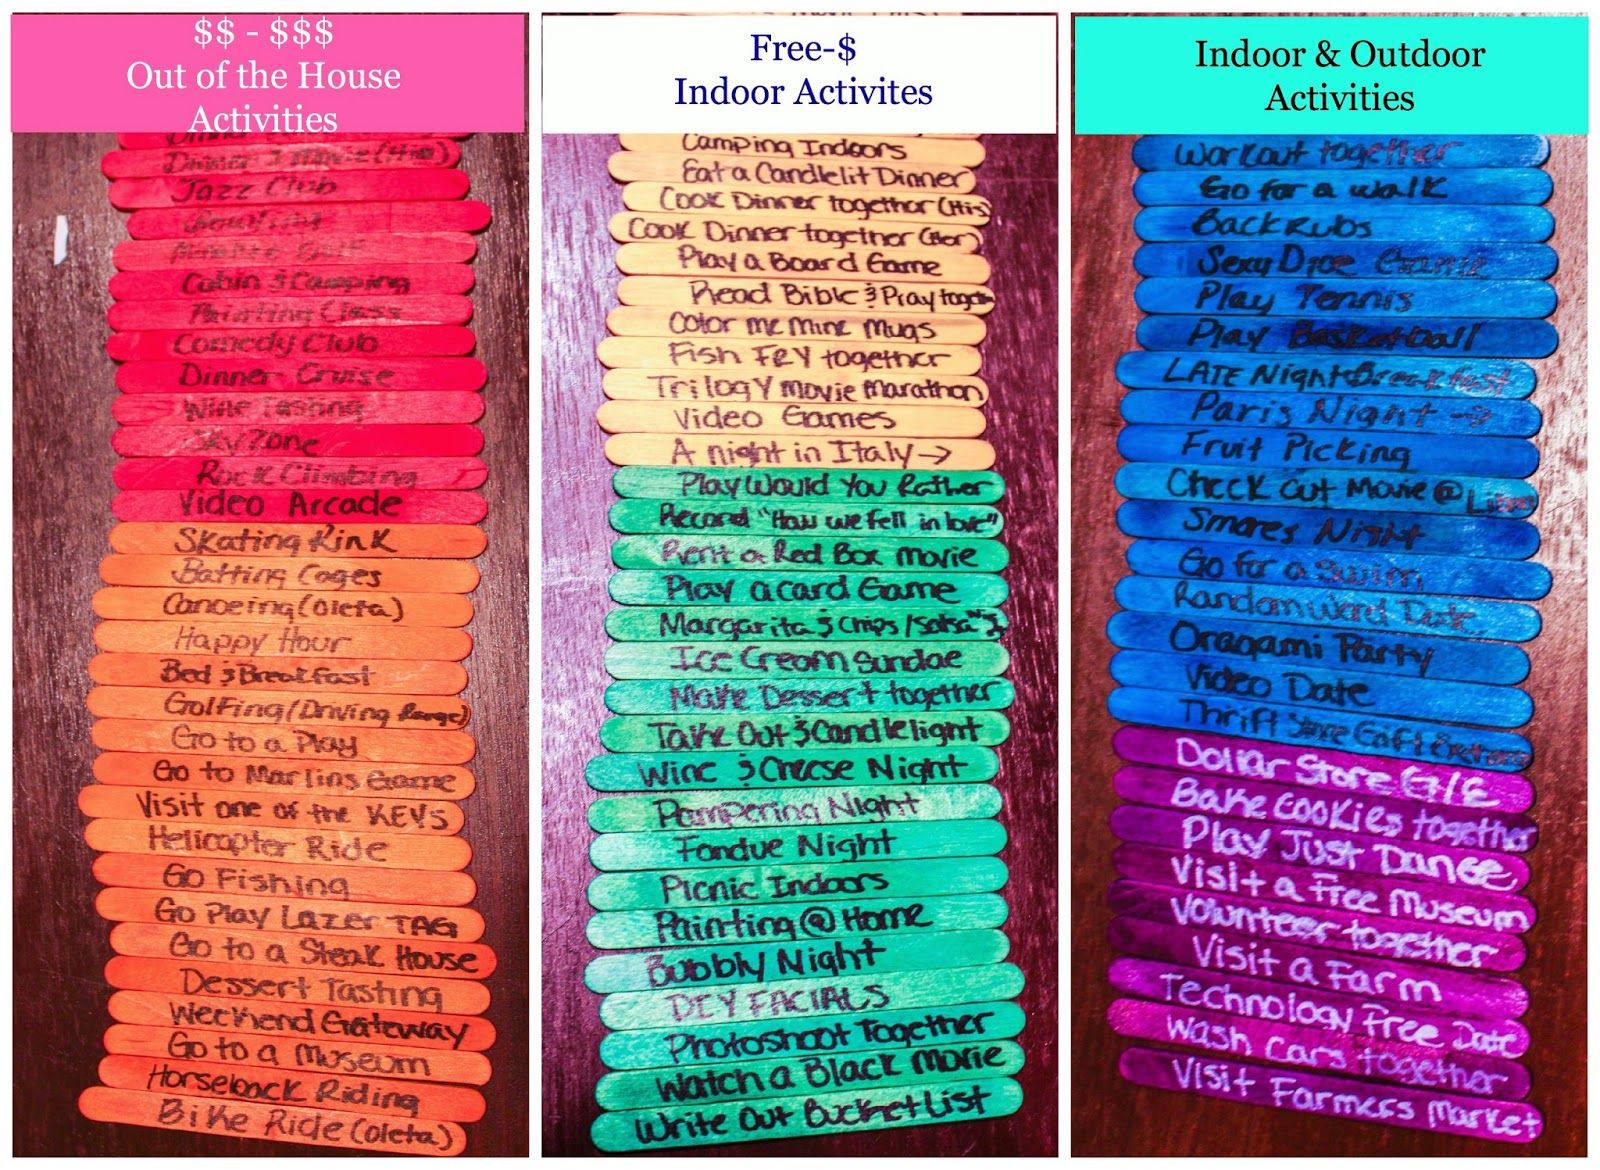 $$ - $$$
Out of the House
Activities
Dinner & Movie (Him)
Jazz Club
Cabin & Camping
Painting Class
Comedy Club
Dinner Cruise
Wine Tasting
Sky Zone
Rock Climbing
Video Arcade
Skating Rink
Batting Cages
Canoeing (Oleta)
Happy Hour
Bed & Breakfast
Golfing (Driving Range)
Go to a Play
Go to Marlins Game
Visit one of the KEYS
Helicopter Ride
Go Fishing
Go Play Lazer TAG
Go to a Steak House
Dessert Tasting
Weekend Gateway
Go to a Museum
Horseback Riding
Bike Ride (Oleta)
Free-$
Indoor Activites
Camping Indoors
Eat a Candlelit Dinner
Cook Dinner together (His)
Cook Dinner together (Her)
Play a Board Game
Read Bible & Pray together
Color me Mine Mugs
Fish FRY together
Trilogy movie Marathon
Video Games
A night in Italy →
Play Would You Rather
Record "How we fell in love"
Rent a Red Box movie
Play a card Game
Margarita & Chips/Salsa
Ice Cream Sundae
Make Dessert together
Take Out & Candlelight
Wine & Cheese Night
Pampering Night
Fondue Night
Picnic Indoors
Painting @ Home
Bubbly Night
DIY FACIALS
Photoshoot Together
Watch a Black Movie
Write Out Bucket List
Indoor & Outdoor
Activities
Workout together
Go for a walk
Back Rubs
Sexy Dice Game
Play Tennis
Play Basketball
LATE Night Breakfast
Paris Night →
Fruit Picking
Check Out Movie @
Smores Night
Go for a swim
Random Word Date
Oragami Party
Video Date
Thrift Store Gift
Dollar Store G/E
Bake Cookies together
Play Just Dance
Visit a Free Museum
Volunteer together
Visit a Farm
Technology Free Date
Wash cars together
Visit Farmers Market